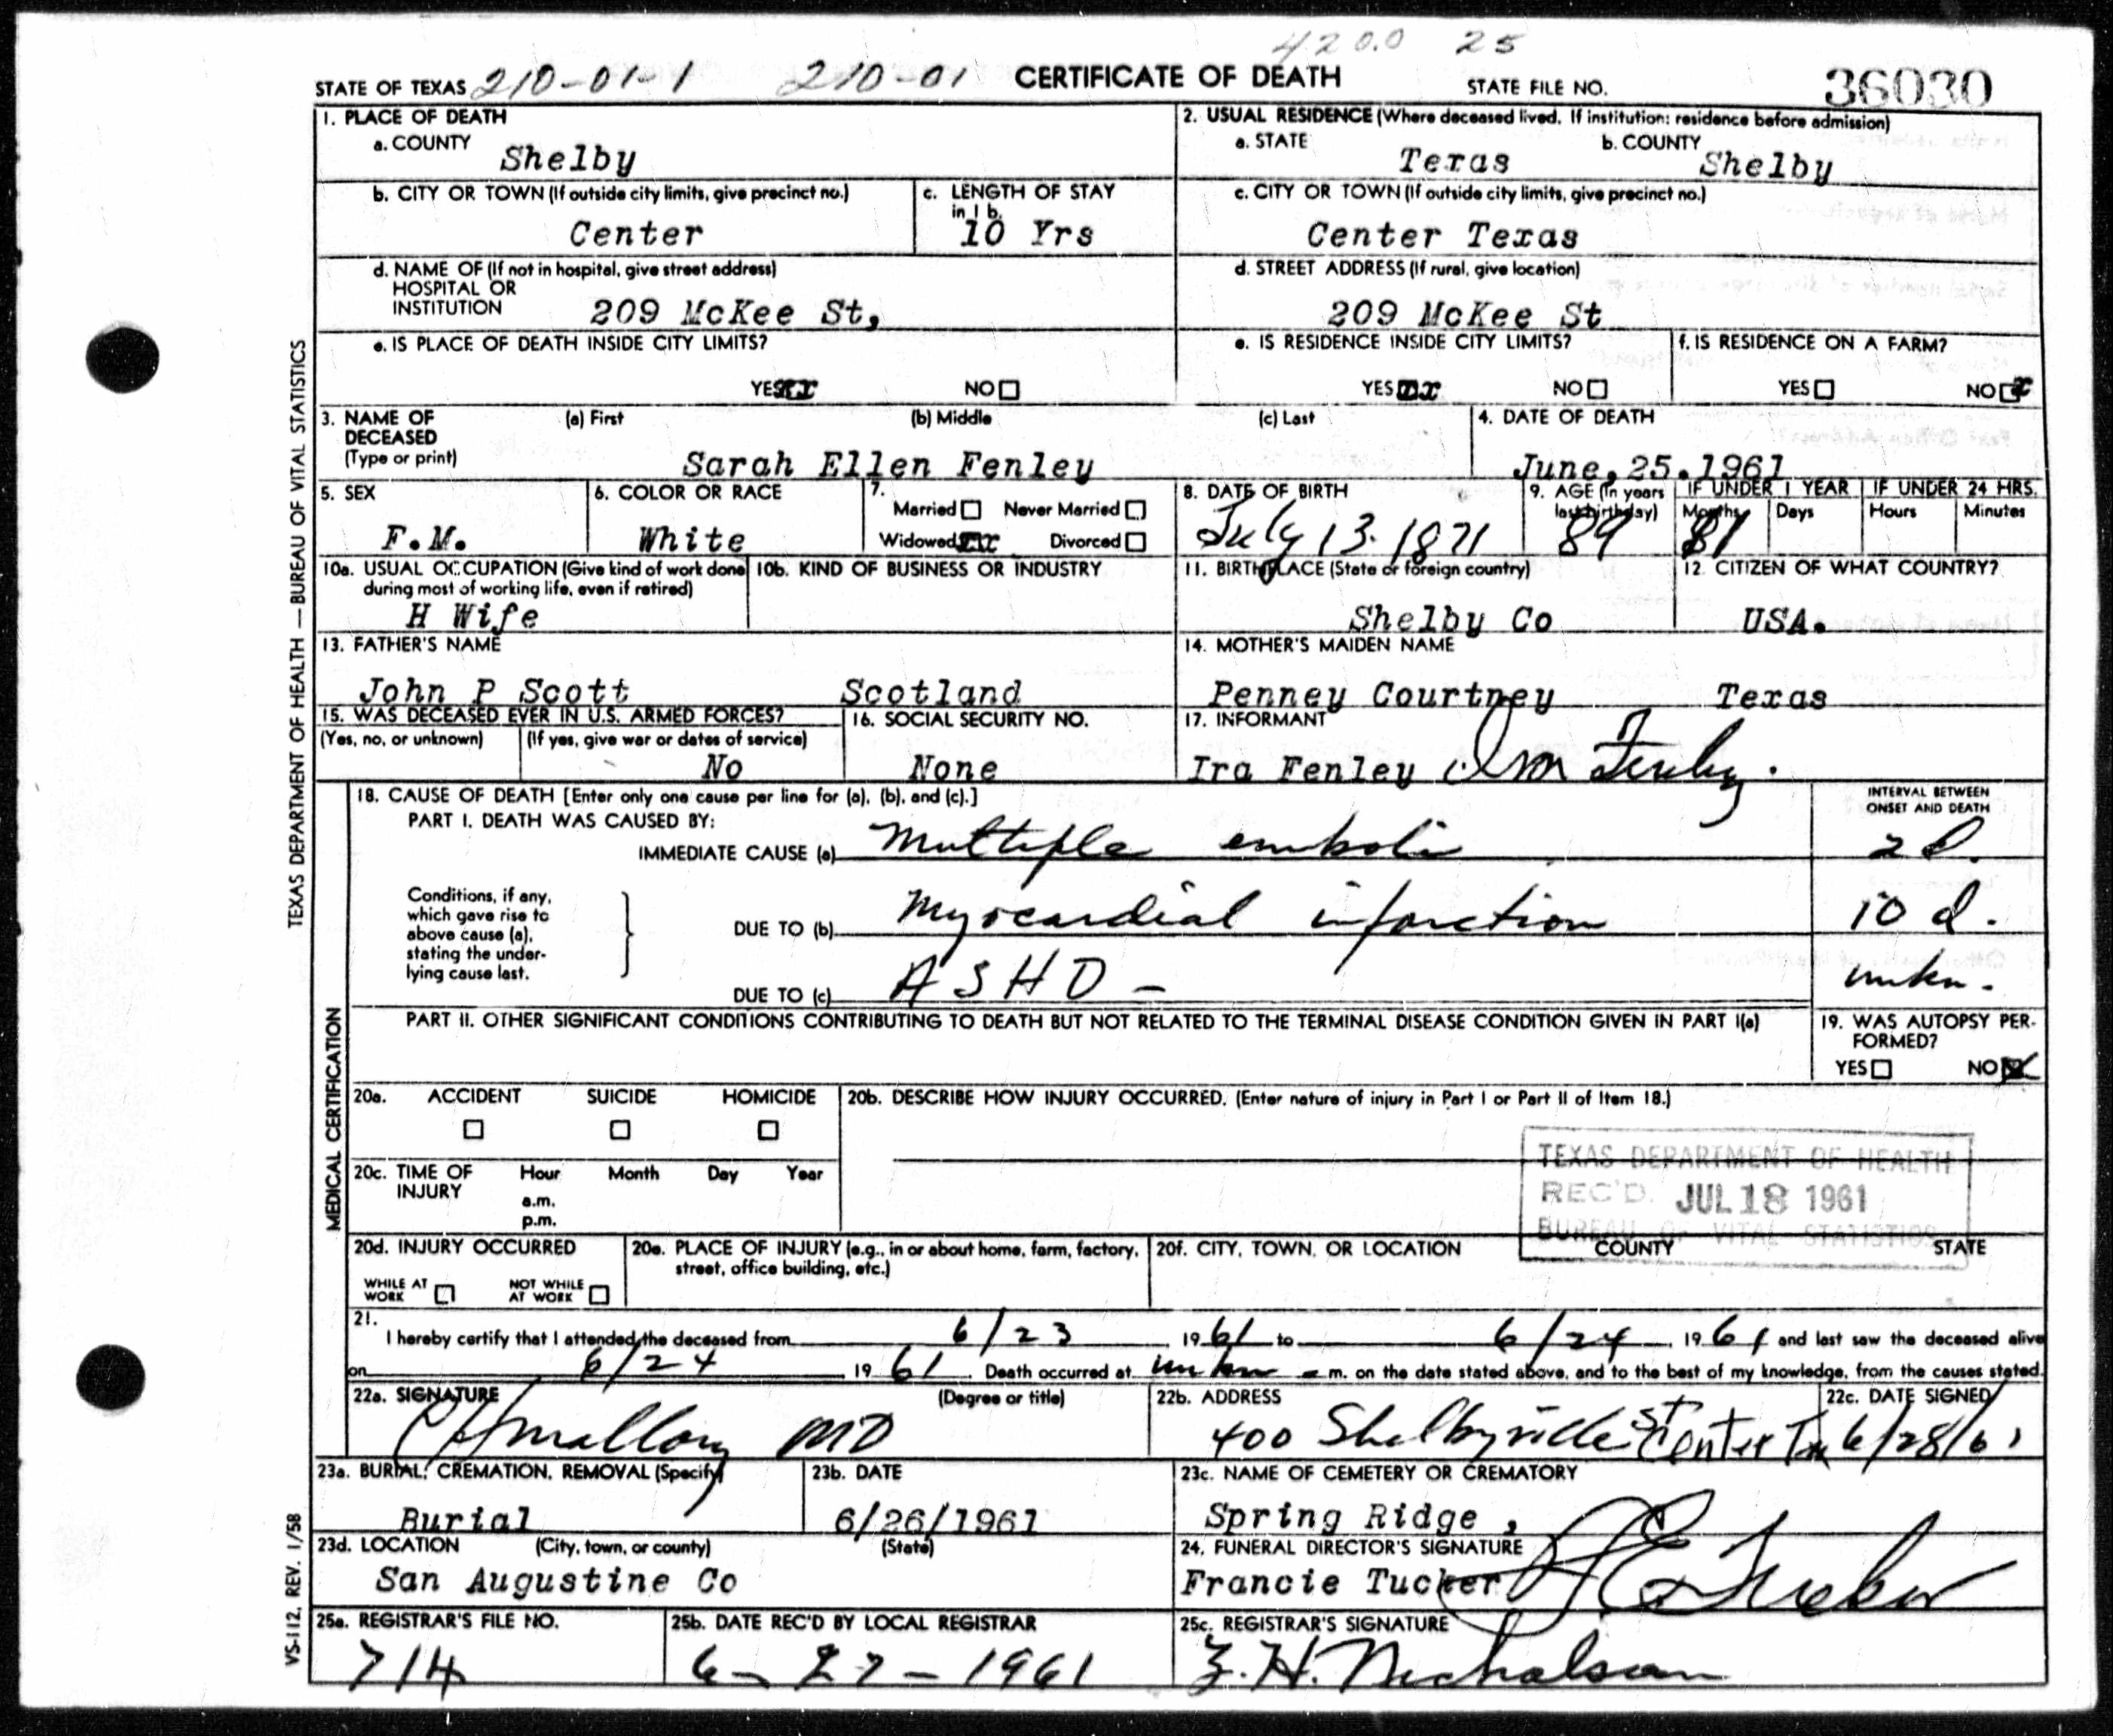 4200 25
STATE OF TEXAS 210-01-1 210-01 CERTIFICATE OF DEATH STATE FILE NO. 36030
1. PLACE OF DEATH
a. COUNTY
Shelby
2. USUAL RESIDENCE (Where deceased lived. If institution: residence before admission)
a. STATE b. COUNTY
Texas Shelby
b. CITY OR TOWN (If outside city limits, give precinct no.)
Center
c. LENGTH OF STAY
in 1 b.
10 Yrs
c. CITY OR TOWN (If outside city limits, give precinct no.)
Center Texas
d. NAME OF (If not in hospital, give street address)
HOSPITAL OR
INSTITUTION 209 McKee St,
d. STREET ADDRESS (If rural, give location)
209 McKee St
e. IS PLACE OF DEATH INSIDE CITY LIMITS?
YES xx NO
e. IS RESIDENCE INSIDE CITY LIMITS?
YES xx NO
f. IS RESIDENCE ON A FARM?
YES NO x
3. NAME OF (a) First (b) Middle (c) Last
DECEASED
(Type or print) Sarah Ellen Fenley
4. DATE OF DEATH
June, 25. 1961
5. SEX
F.M.
6. COLOR OR RACE
White
7.
Married Never Married
Widowed xx Divorced
8. DATE OF BIRTH
July 13. 1871
9. AGE (In years
last birthday)
89
IF UNDER 1 YEAR IF UNDER 24 HRS.
Months Days Hours Minutes
10a. USUAL OCCUPATION (Give kind of work done
during most of working life, even if retired)
H Wife
10b. KIND OF BUSINESS OR INDUSTRY
11. BIRTHPLACE (State or foreign country)
Shelby Co
12. CITIZEN OF WHAT COUNTRY?
USA.
13. FATHER'S NAME
John P Scott Scotland
14. MOTHER'S MAIDEN NAME
Penney Courtney Texas
15. WAS DECEASED EVER IN U.S. ARMED FORCES?
(Yes, no, or unknown) (If yes, give war or dates of service)
No
16. SOCIAL SECURITY NO.
None
17. INFORMANT
Ira Fenley Ira Fenley.
TEXAS DEPARTMENT OF HEALTH — BUREAU OF VITAL STATISTICS
MEDICAL CERTIFICATION
18. CAUSE OF DEATH [Enter only one cause per line for (a), (b), and (c).]
INTERVAL BETWEEN
ONSET AND DEATH
PART I. DEATH WAS CAUSED BY:
IMMEDIATE CAUSE (a) Multiple emboli 2 d.
Conditions, if any,
which gave rise to
above cause (a),
stating the under-
lying cause last.
DUE TO (b) Myocardial infarction 10 d.
DUE TO (c) ASHD - unkn.
PART II. OTHER SIGNIFICANT CONDITIONS CONTRIBUTING TO DEATH BUT NOT RELATED TO THE TERMINAL DISEASE CONDITION GIVEN IN PART I(a)
19. WAS AUTOPSY PER-
FORMED?
YES NO x
20a. ACCIDENT SUICIDE HOMICIDE
20b. DESCRIBE HOW INJURY OCCURRED. (Enter nature of injury in Part I or Part II of Item 18.)
20c. TIME OF Hour Month Day Year
INJURY a.m.
p.m.
TEXAS DEPARTMENT OF HEALTH
REC'D. JUL 18 1961
BUREAU OF VITAL STATISTICS
20d. INJURY OCCURRED
WHILE AT WORK NOT WHILE AT WORK
20e. PLACE OF INJURY (e.g., in or about home, farm, factory,
street, office building, etc.)
20f. CITY, TOWN, OR LOCATION COUNTY STATE
21.
I hereby certify that I attended the deceased from 6/23, 1961 to 6/24, 1961 and last saw the deceased alive
on 6/24, 1961. Death occurred at unkn m. on the date stated above, and to the best of my knowledge, from the causes stated.
22a. SIGNATURE (Degree or title)
Mallory MD
22b. ADDRESS
400 Shelbyville St Center Tex
22c. DATE SIGNED
6/28/61
23a. BURIAL, CREMATION, REMOVAL (Specify)
Burial
23b. DATE
6/26/1961
23c. NAME OF CEMETERY OR CREMATORY
Spring Ridge,
23d. LOCATION (City, town, or county) (State)
San Augustine Co
24. FUNERAL DIRECTOR'S SIGNATURE
Francie Tucker
25a. REGISTRAR'S FILE NO.
714
25b. DATE REC'D BY LOCAL REGISTRAR
6-27-1961
25c. REGISTRAR'S SIGNATURE
Z. H. Nicholson
VS-112, REV. 1/58